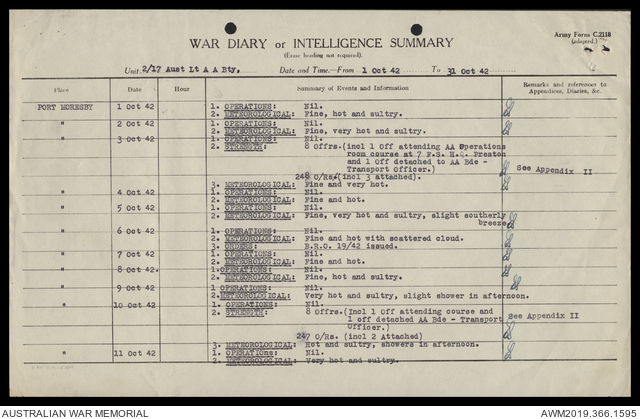 Army Form C.2118
(adapted.)
WAR DIARY or INTELLIGENCE SUMMARY
(Erase heading not required).
Unit. 2/17 Aust Lt A A Bty, Date and Time.—From 1 Oct 42 To 31 Oct 42
Place Date Hour Summary of Events and Information Remarks and references to Appendices, Diaries, &c.
PORT MORESBY 1 Oct 42 1. OPERATIONS: Nil.
2. METEOROLOGICAL: Fine, hot and sultry.
" 2 Oct 42 1. OPERATIONS: Nil.
2. METEOROLOGICAL: Fine, very hot and sultry.
" 3 Oct 42 1. OPERATIONS: Nil.
2. STRENGTH: 8 Offrs.(incl 1 Off attending AA Operations
room course at 7 F.S. H.Q. Preston
and 1 Off detached to AA Bde -
Transport Officer.) See Appendix II
248 O/Rs.(incl 3 attached).
3. METEOROLOGICAL: Fine and very hot.
" 4 Oct 42 1. OPERATIONS: Nil.
2. METEOROLOGICAL: Fine and hot.
" 5 Oct 42 1. OPERATIONS: Nil.
2. METEOROLOGICAL: Fine, very hot and sultry, slight southerly
breeze
" 6 Oct 42 1. OPERATIONS: Nil.
2. METEOROLOGICAL: Fine and hot with scattered cloud.
3. ORDERS: B.R.O. 19/42 issued.
" 7 Oct 42 1. OPERATIONS: Nil.
2. METEOROLOGICAL: Fine and hot.
" 8 Oct 42. 1.OPERATIONS: Nil.
2. METEOROLOGICAL: Fine, hot and sultry.
" 9 Oct 42 1 OPERATIONS: Nil.
2.METEOROLOGICAL: Very hot and sultry, slight shower in afternoon.
" 10 Oct 42 1. OPERATIONS: Nil.
2. STRENGTH: 8 Offrs.(Incl 1 Off attending course and
1 off detached AA Bde - Transport See Appendix II
Officer.)
247 O/Rs. (incl 2 Attached)
3. METEOROLOGICAL: Hot and sultry, showers in afternoon.
" 11 Oct 42 1. OPERATIONs: Nil.
2. METEOROLOGICAL: Very hot and sultry.
AUSTRALIAN WAR MEMORIAL AWM2019.366.1595